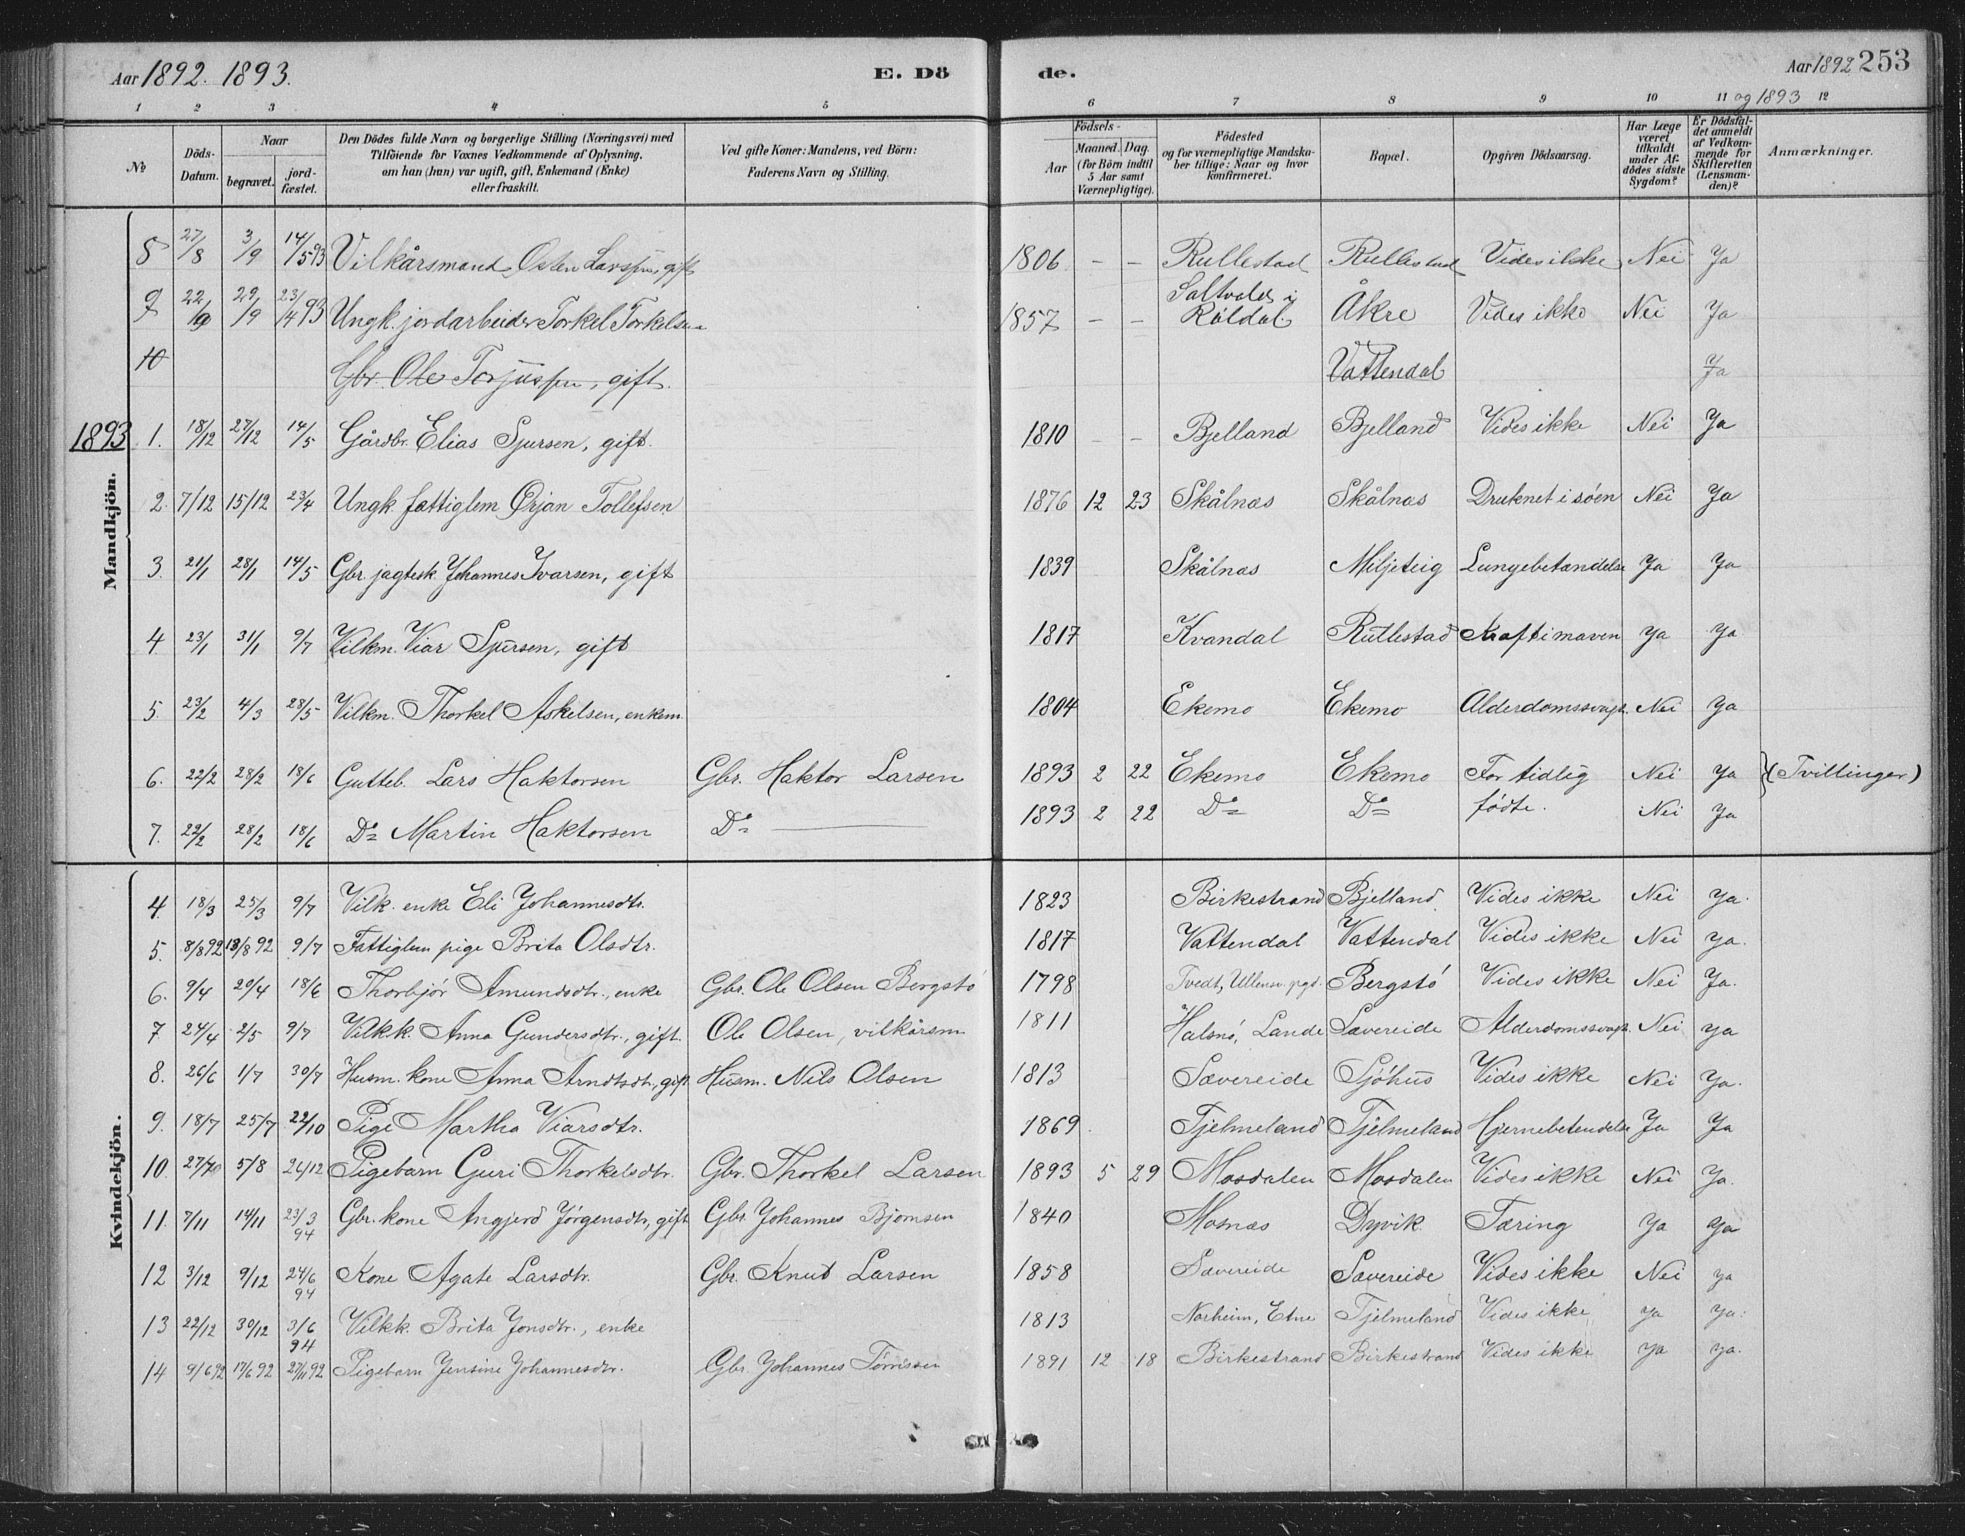 Aar 1892. 1893. E. Dö de. Aar 1892 253
og 1893
1 2 3 4 5 6 7 8 9 10 11 12
No Döds-Datum. Naar begravet. jord-fæstet. Den Dödes fulde Navn og borgerlige Stilling (Næringsvei) med Tilföiende for Voxnes Vedkommende af Oplysning, om han (hun) var ugift, gift, Enkemand (Enke) eller fraskilt. Ved gifte Koner: Mandens, ved Börn: Faderens Navn og Stilling. Födsels- Aar Maaned. Dag. (for Börn indtil 5 Aar samt Værnepligtige). Födested og for værnepligtige Mandskaber tillige: Naar og hvor konfirmeret. Bopæl. Opgiven Dödsaarsag. Har Læge været tilkaldt under Afdödes sidste Sygdom? Er Dödsfaldet anmeldt af Vedkommende for Skifteretten (Lensmanden)? Anmærkninger.
Mandkjön.
8 27/8 3/9 14/5 93 Vilkårsmand Osten Larssen, gift 1806 – – Rullestad Rullestad Vides ikke Nei Ja
9 22/9 29/9 23/4 93 Ungk. jordarbeider Torkel Torkelsen 1857 – – Saltvold i Røldal Åkre Vides ikke Nei Ja
10 Gbr. Ole Torjussen, gift. Vattendal Ja
1893 1. 18/12 27/12 14/5 Gårdbr. Elias Sjursen, gift. 1810 – – Bjelland Bjelland Vides ikke Nei Ja
2. 7/12 15/12 23/4 Ungk. fattiglem Ørjan Tollefsen 1876 12 23 Skålnas Skålnas Druknet i søen Nei Ja
3. 21/1 28/1 14/5 Gbr. jagtesk. Johannes Ivarsen, gift 1839 Skålnas Miljeteig Lungebetændelse Ja Ja
4. 23/1 31/1 9/7 Vilkm. Viar Sjursen, gift 1817 Kvandal Rullestad Kræft i maven Ja Ja
5. 23/2 4/3 28/5 Vilkm. Thorkel Askelsen, enkem. 1804 Ekemo Ekemo Alderdomssvagh. Nei Ja
6. 22/2 28/2 18/6 Gutteb. Lars Haktorsen Gbr. Haktor Larsen 1893 2 22 Ekemo Ekemo For tidlig Nei Ja (Tvillinger)
7. 22/2 28/2 18/6 Do Martin Haktorsen Do 1893 2 22 Do Do fødte. Nei Ja
Kvindekjön.
4 18/3 25/3 9/7 Vilk. enke Eli Johannesdtr. 1823 Birkestrand Bjelland Vides ikke Nei Ja.
5. 8/8 92 13/8 92 9/7 Fattiglem pige Brita Olsdtr. 1817 Vattendal Vattendal Vides ikke Nei Ja.
6. 9/4 20/4 18/6 Thorbjør Amundsdtr., enke Gbr. Ole Olsen Bergstø 1798 Tvedt, Ullensv. pgd. Bergstø Vides ikke Nei Ja.
7 24/4 2/5 9/7 Vilkk. Anna Gundersdtr., gift. Ole Olsen, vilkårsm 1811 Halsnø, Lande Sævereide Alderdomssvagh. Nei Ja
8. 26/6 1/7 30/7 Husm. kone Anna Arndtsdtr., gift Husm. Nils Olsen 1813 Sævereide Sjøhus Vides ikke Nei Ja.
9. 18/7 25/7 22/10 Pige Martha Viarsdtr. 1869 Tjelmeland Tjelmeland Hjernebetendelse Ja Ja
10. 27/7 5/8 26/12 Pigebarn Guri Thorkelsdtr. Gbr. Thorkel Larsen 1893 5 29 Mosdalen Mosdalen Vides ikke Nei Ja.
11. 7/11 14/11 23/3 94 Gbr. kone Angjerd Jørgensdtr., gift Gbr. Johannes Bjørnsen 1840 Mosnæs Dyvik Tæring Ja Ja
12 3/12 9/12 24/6 94 Kone Agate Larsdtr. Gbr. Knut Larsen 1858 Sævereide Sævereide Vides ikke Nei Ja
13 22/12 30/12 3/6 94 Vilkk. Brita Jonsdtr., enke 1813 Norheim, Etne Tjelmeland Vides ikke Ja Ja.
14 9/6 92 17/6 92 27/11 92 Pigebarn Jensine Johannesdtr. Gbr. Johannes Tørrissen 1891 12 18 Birkestrand Birkestrand Vides ikke Ja Ja.